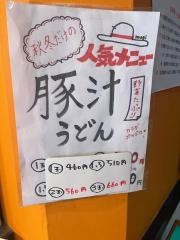 秋冬だけの
人気メニュー
豚汁
うどん
野菜たっぷり
1玉 460円 1.5 510円
2玉 560円 3玉 660円